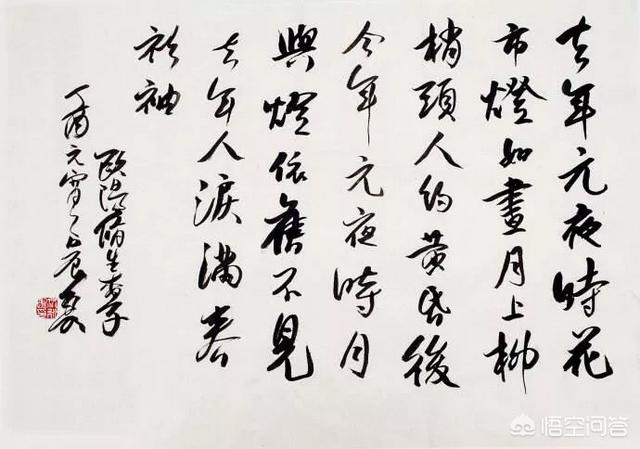 去年元夜時花
市燈如晝月上柳
梢頭人约黄昏後
今年元夜時月
與燈依舊不見
去年人淚滿春
衫袖
歐陽脩生查子
丁酉元宵
悟空问答